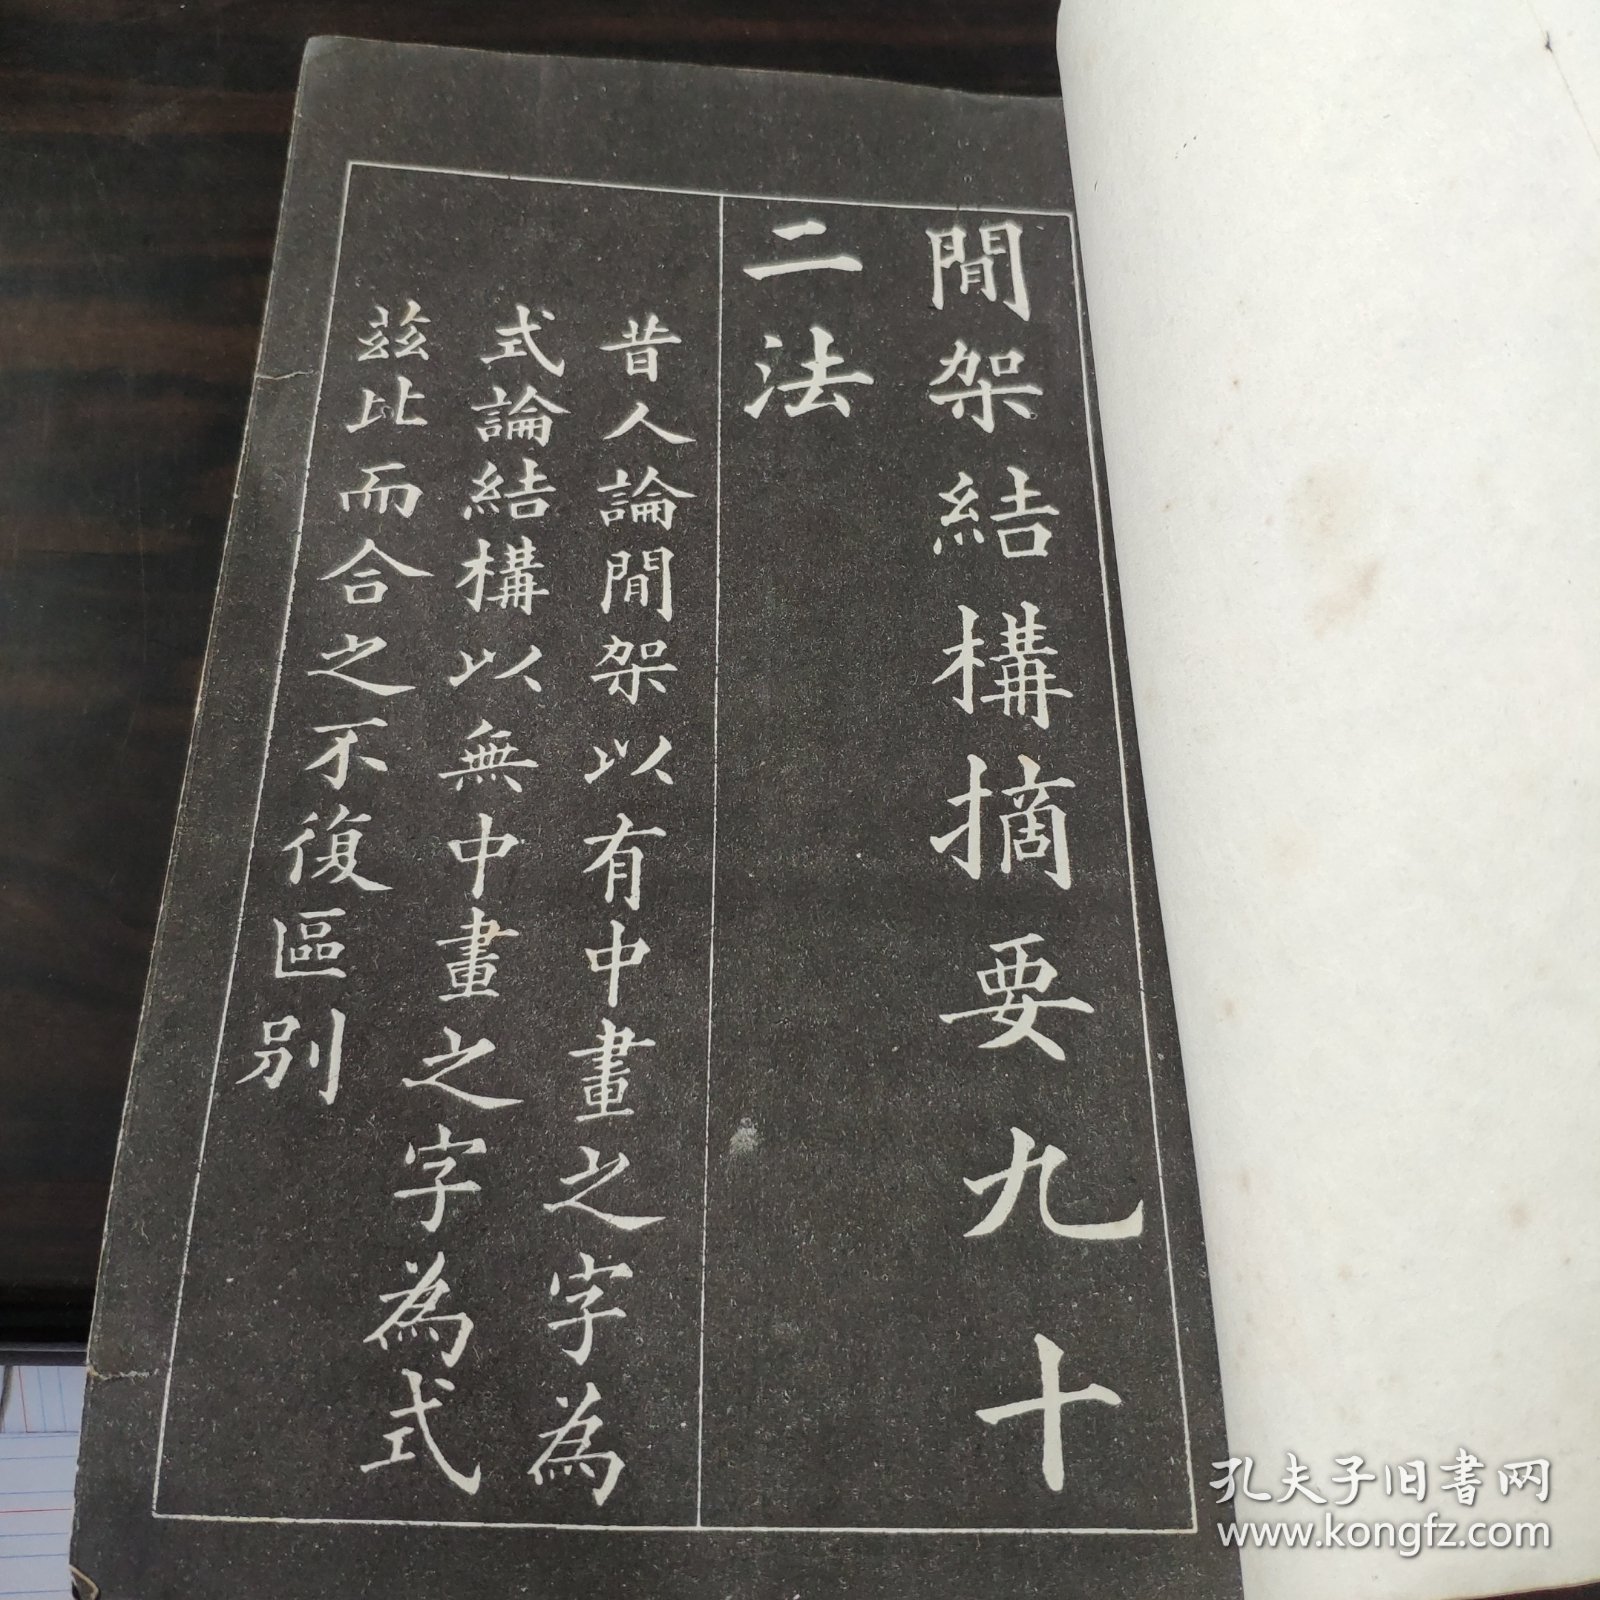 閒架結構摘要九十
二法
昔人論閒架以有中畫之字為
式論結構以無中畫之字為式
茲比而合之不復區別
孔夫子旧书网
www.kongfz.com